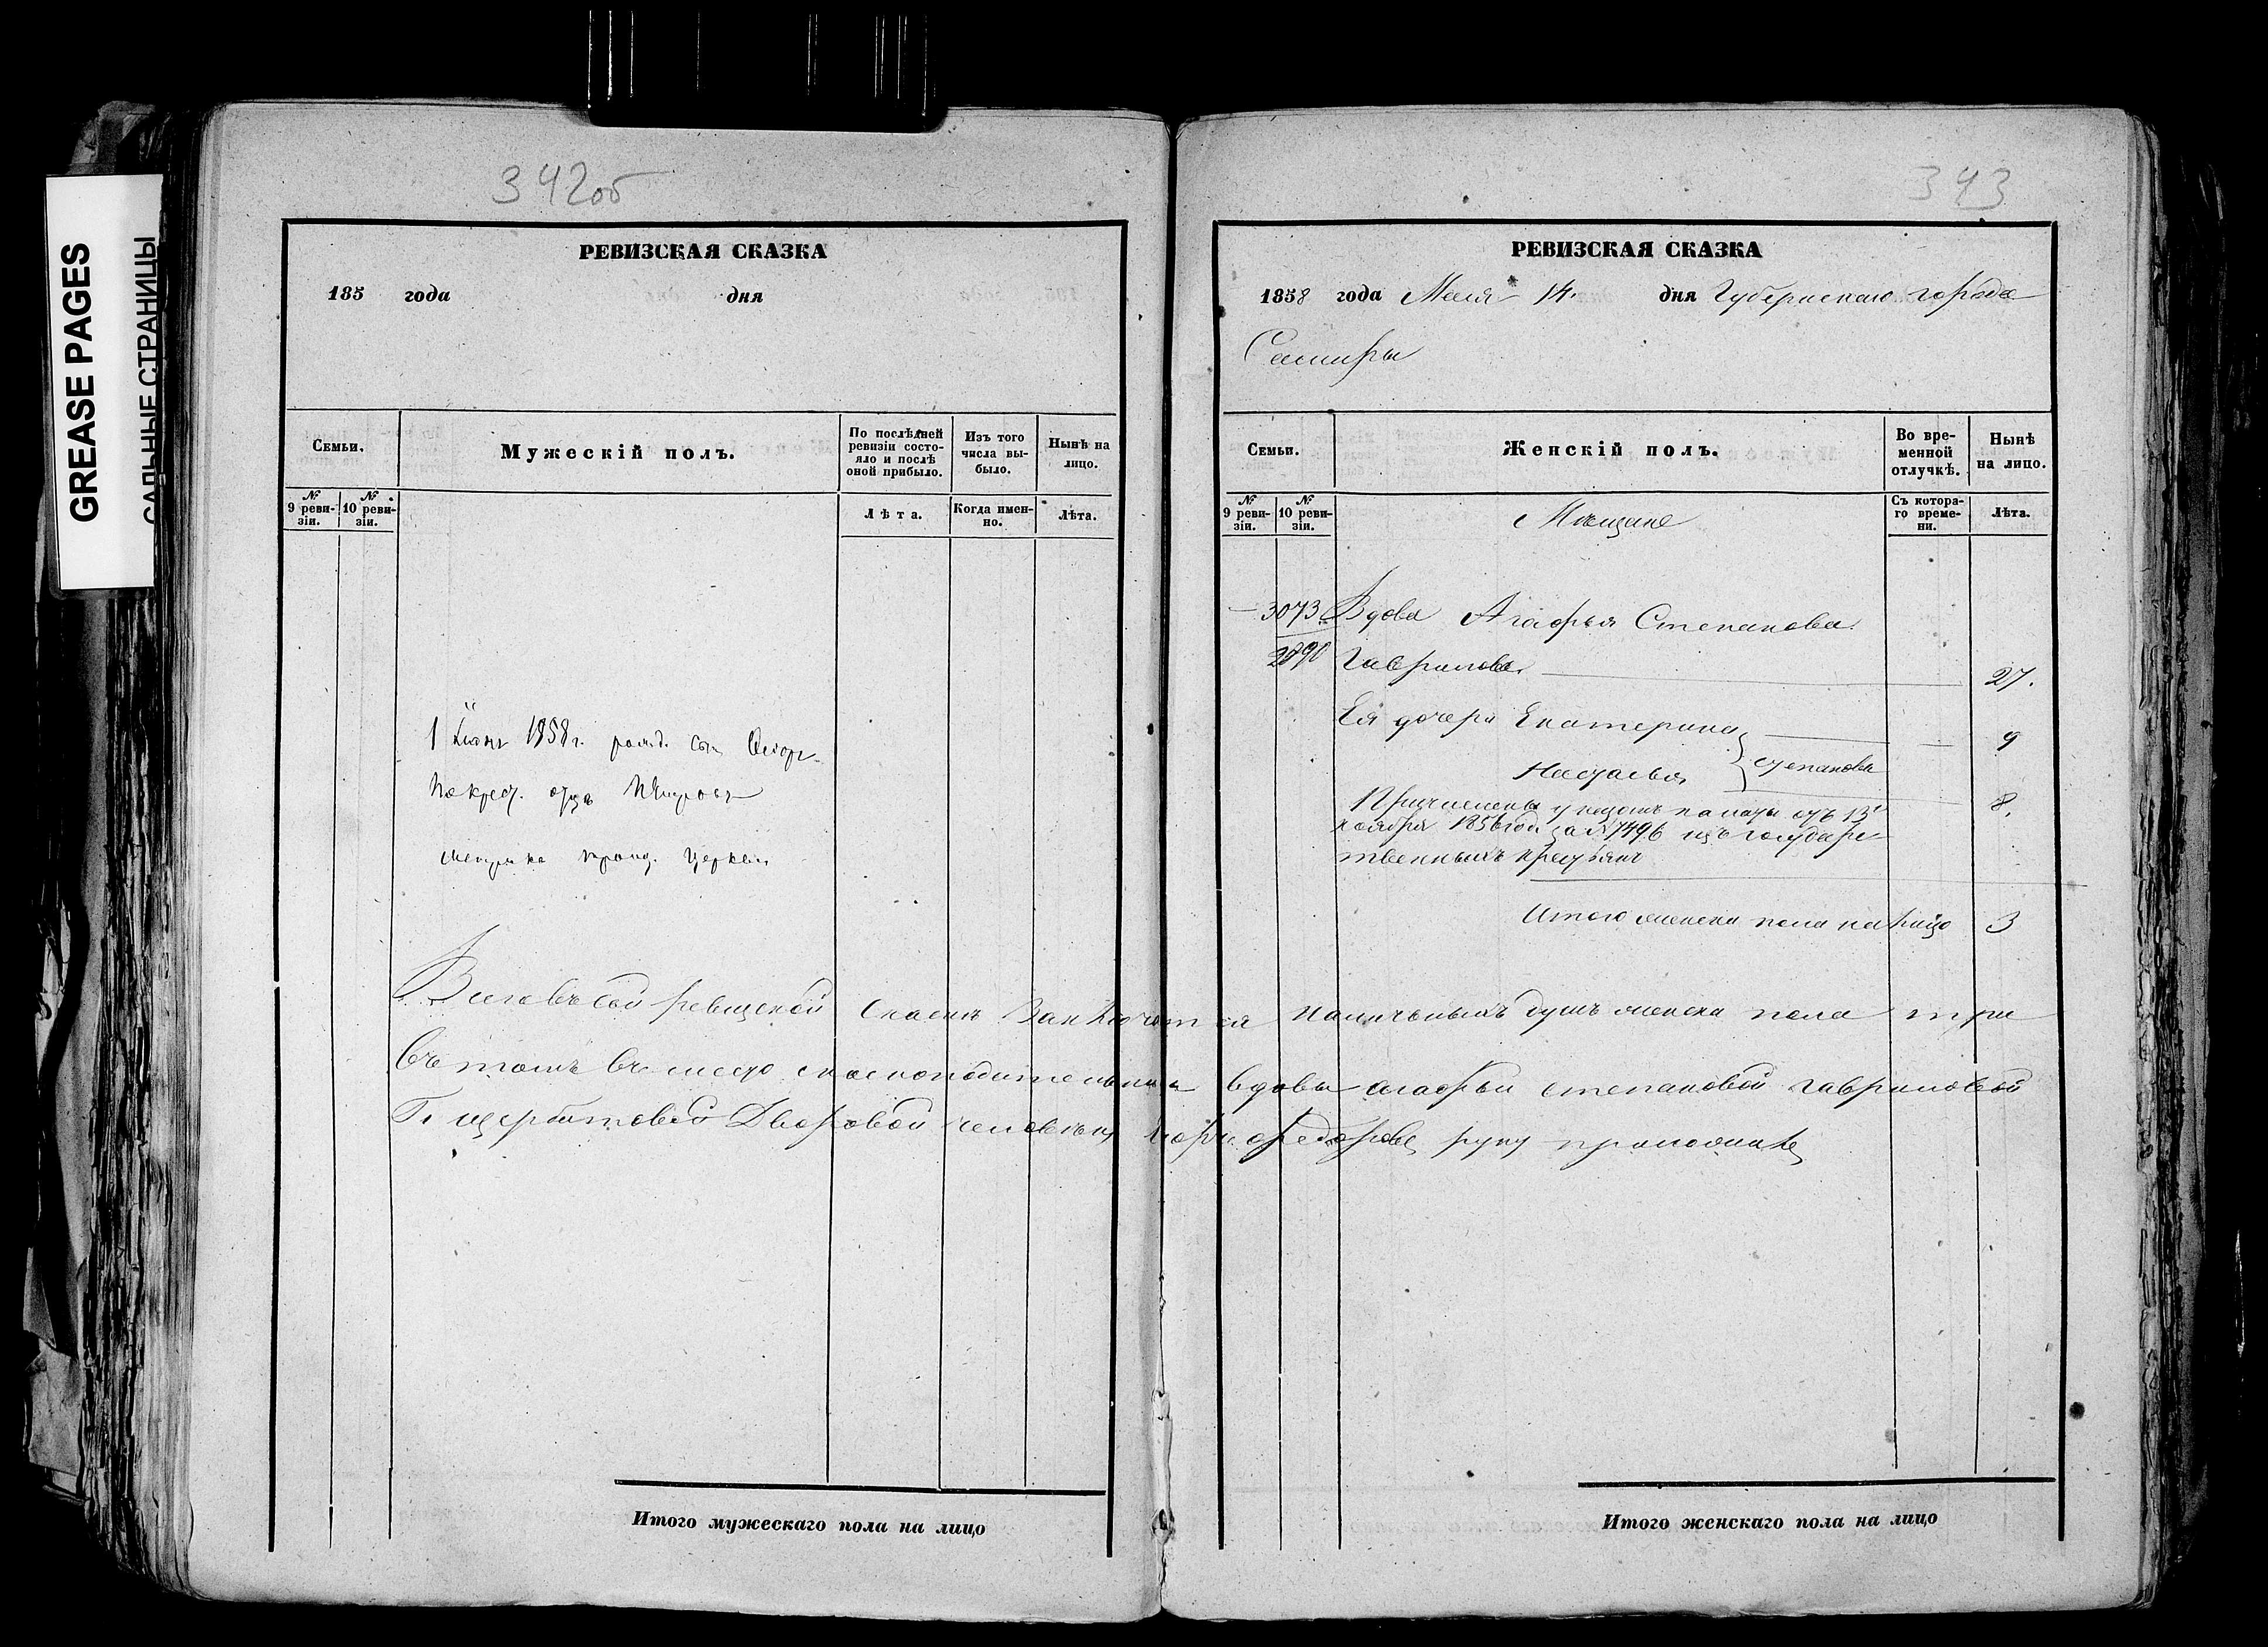 GREASE PAGES
САЛЬНЫЕ СТРАНИЦЫ
342об
РЕВИЗСКАЯ СКАЗКА
185 года дня
Семьи.
Мужескій полъ.
По послѣдней ревизіи состояло и послѣ оной прибыло.
Изъ того числа выбыло.
Нынѣ на лицо.
№ 9 ревизіи.
№ 10 ревизіи.
Лѣта.
Когда именно.
Лѣта.
1 1858 г. рожд. сын
церкви
343
РЕВИЗСКАЯ СКАЗКА
1858 года Маія 14. дня Губернскаго города
Самары
Семьи.
Женскій полъ.
Во временной отлучкѣ.
Нынѣ на лицо.
№ 9 ревизіи.
№ 10 ревизіи.
Съ котораго времени.
Лѣта.
Мѣщане
3073 Вдова Агафья Степанова
Гаврилова 27.
Ея дочери Екатерина 9
Настасья Степановы 8.
Причислены палаты отъ 13
ноября 1856 год за № 7496 изъ государс
твенныхъ крестьянъ
Итого женска пола на лицо 3
Всего въ сей ревизской сказкѣ Заключается наличныхъ душъ женска пола три
Въ томъ вместо вдовы агафьи степановой гавриловой
Дворовой человекъ федоровъ руку приложилъ
Итого мужескаго пола на лицо
Итого женскаго пола на лицо